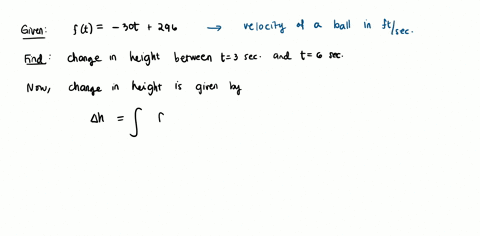 Given: f(t) = -30t + 296 → velocity of a ball in ft/sec.
Find: change in height between t=3 sec. and t=6 sec.
Now, change in height is given by
Δh = ∫ f